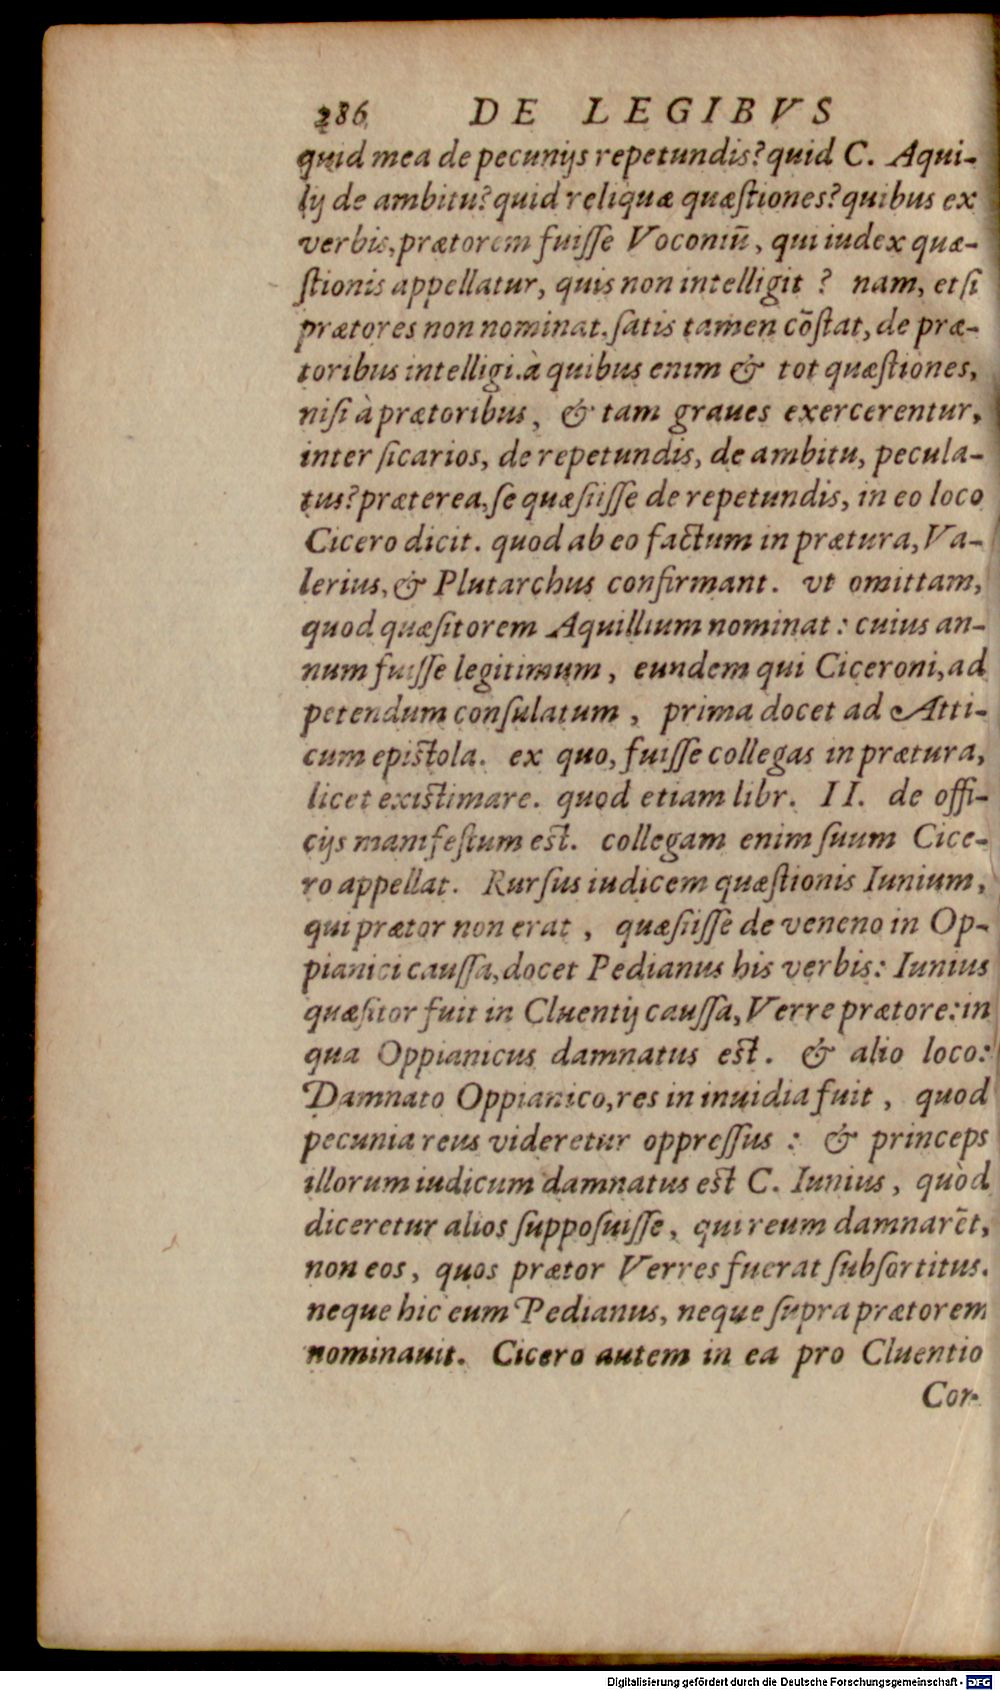 286 DE LEGIBVS
quid mea de pecunijs repetundis? quid C. Aqui-
lij de ambitu? quid reliquæ quæſtiones? quibus ex
verbis, prætorem fuiſſe Voconiũ, qui iudex quæ-
ſtionis appellatur, quis non intelligit ? nam, etſi
prætores non nominat. ſatis tamen cõſtat, de præ-
toribus intelligi. à quibus enim & tot quæſtiones,
niſi à prætoribus, & tam graues exercerentur,
inter ſicarios, de repetundis, de ambitu, pecula-
tus? præterea, ſe quæſiiſſe de repetundis, in eo loco
Cicero dicit. quod ab eo factum in prætura, Va-
lerius, & Plutarchus confirmant. vt omittam,
quod quæſitorem Aquillium nominat: cuius an-
num fuiſſe legitimum, eundem qui Ciceroni, ad
petendum conſulatum, prima docet ad Atti-
cum epiſtola. ex quo, fuiſſe collegas in prætura,
licet existimare. quod etiam libr. II. de offi-
cijs manifeſtum eſt. collegam enim ſuum Cice-
ro appellat. Rurſus iudicem quæſtionis Iunium,
qui prætor non erat, quæſiiſſe de veneno in Op-
pianici cauſſa, docet Pedianus his verbis: Iunius
quæſitor fuit in Cluentij cauſſa, Verre prætore: in
qua Oppianicus damnatus eſt. & alio loco:
Damnato Oppianico, res in inuidia fuit, quod
pecunia reus videretur oppreſſus: & princeps
illorum iudicum damnatus eſt C. Iunius, quòd
diceretur alios ſuppoſuiſſe, qui reum damnarẽt,
non eos, quos prætor Verres fuerat ſubſortitus.
neque hic eum Pedianus, neque ſupra prætorem
nominauit. Cicero autem in ea pro Cluentio
Cor-
Digitalisierung gefördert durch die Deutsche Forschungsgemeinschaft - DFG